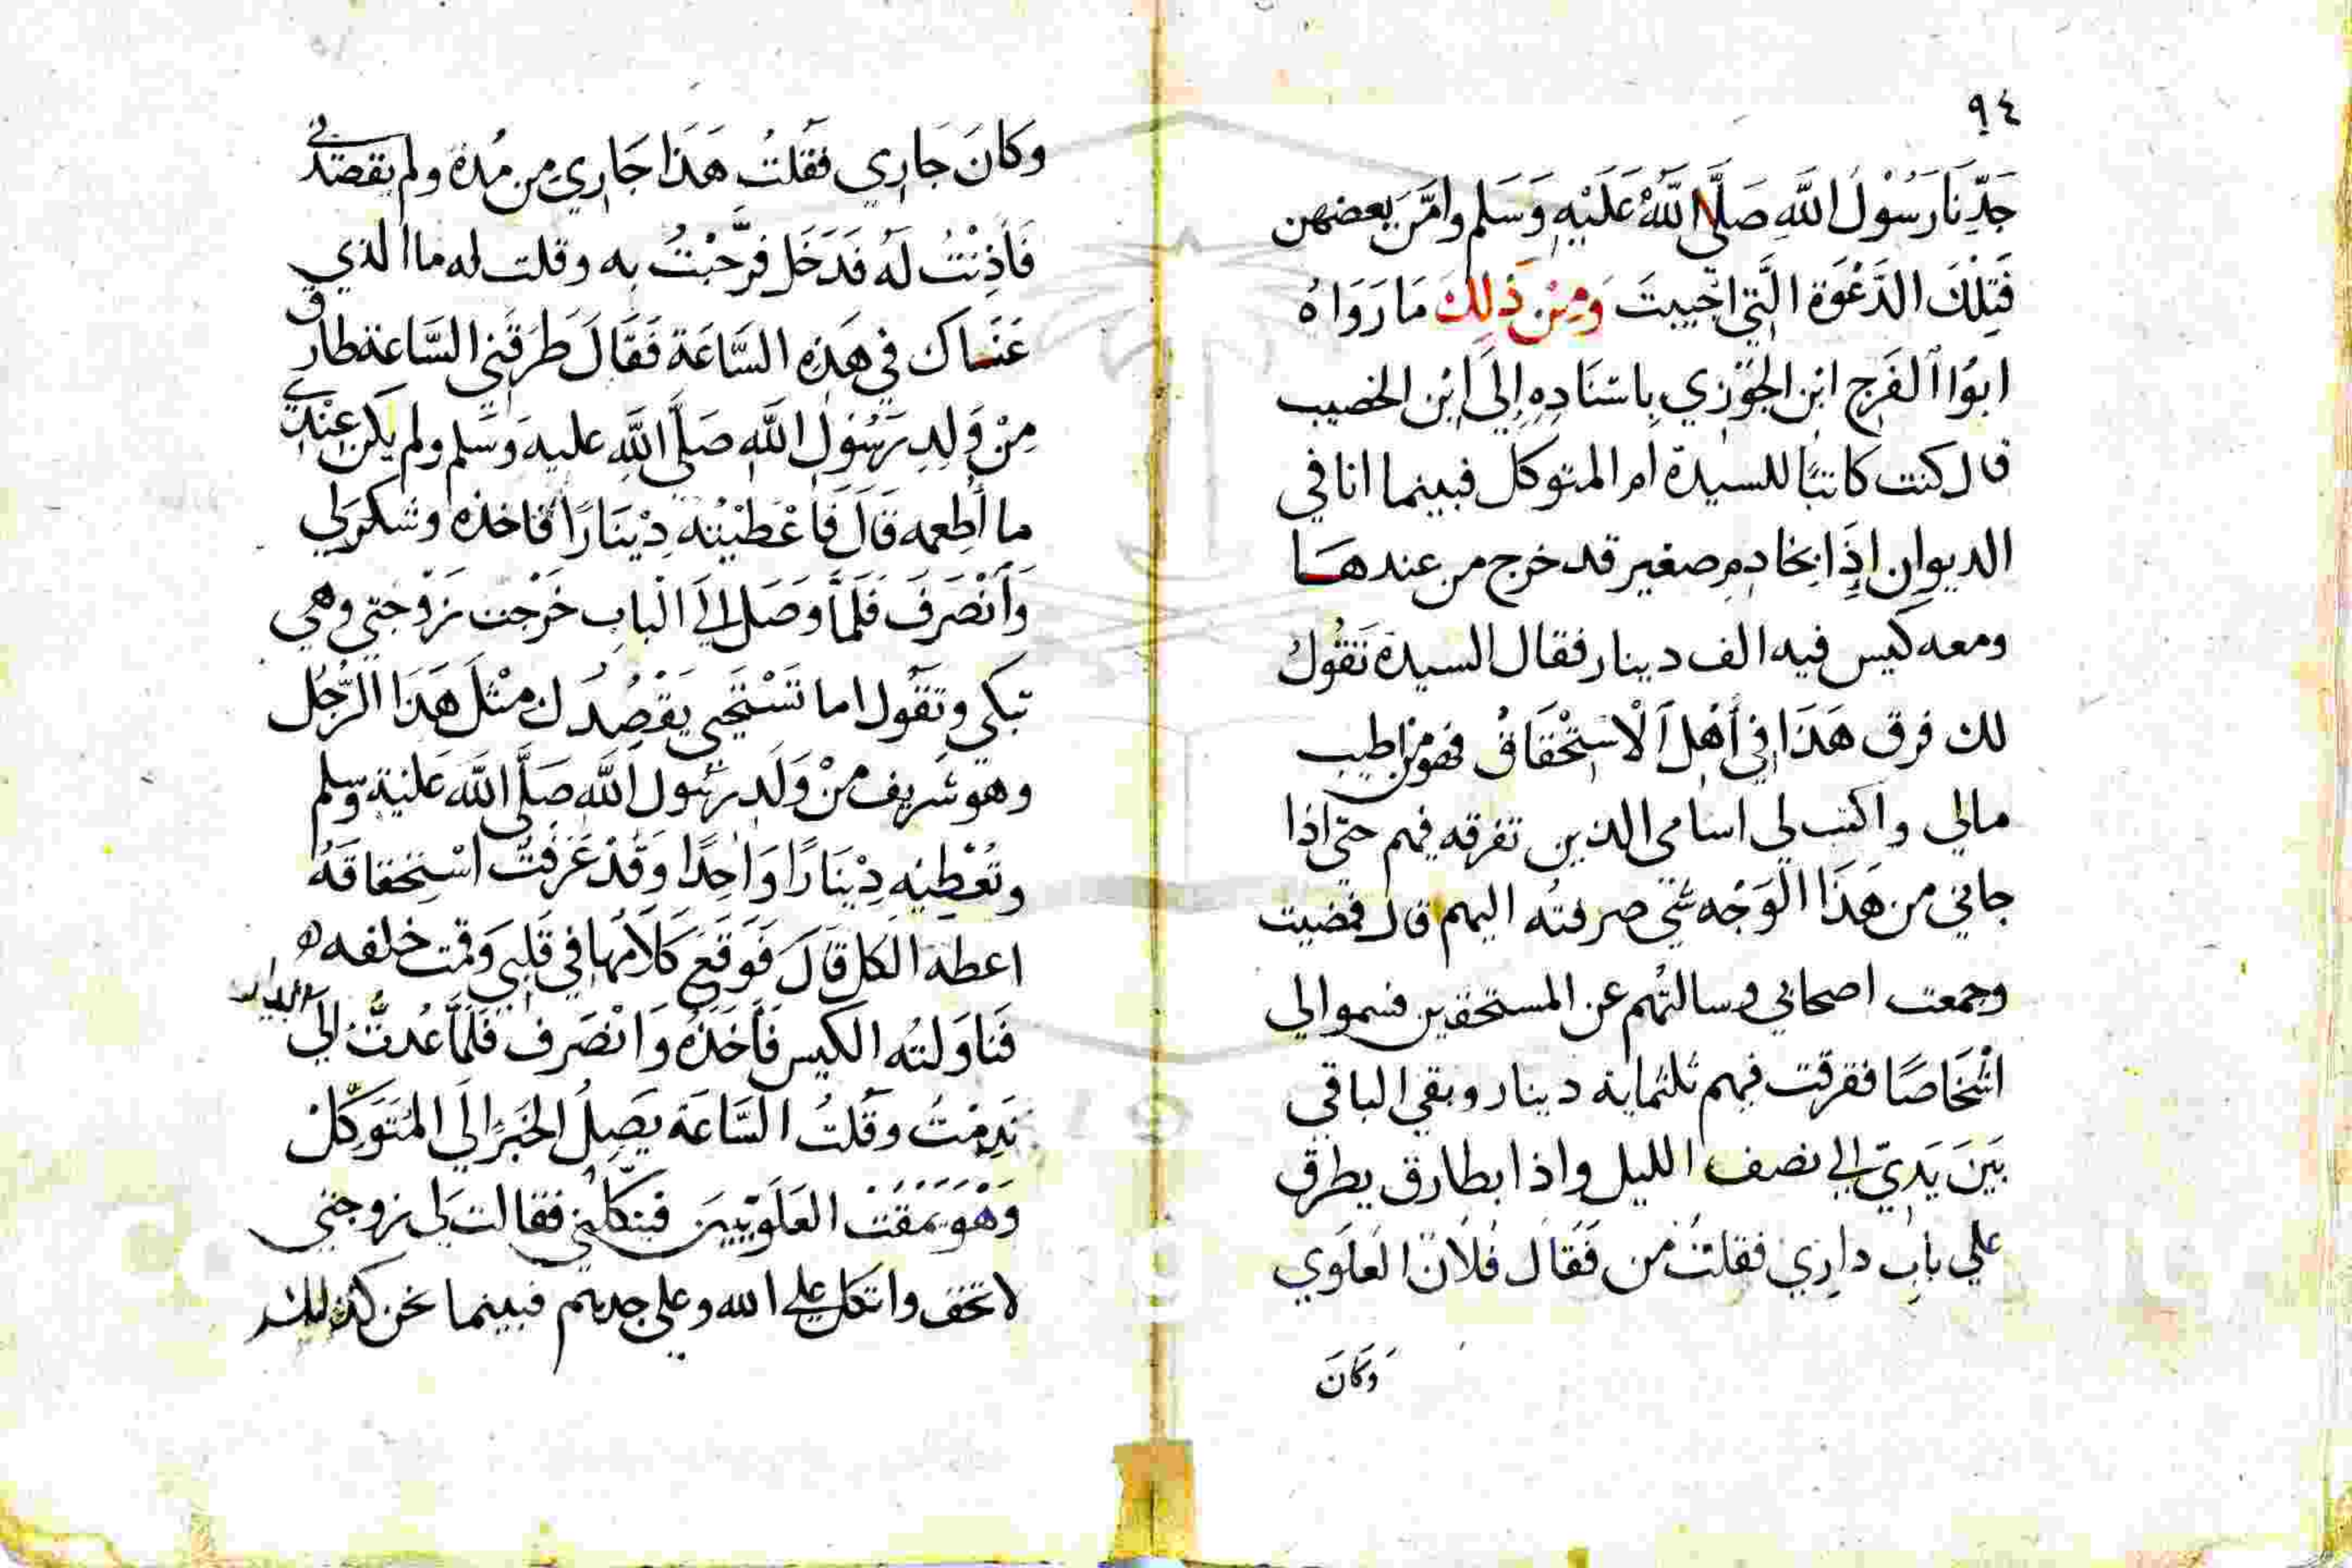 ٩٤
جَدِّنَا رَسُوْلُ اللَّهِ صَلَّى اللَّهُ عَلَيْهِ وَسَلم وامَّنَ بعضهن
فَتِلْكَ الدَّعْوَة الَّتِي اجيبتَ وَمِنْ ذَلِكَ مَا رَوَاهُ
ابوُا الفَرج ابْن الجَوْزي بِاسْنَادِهِ إِلَى ابْن الخصيب
قال كنت كاتبًا للسيدة ام المتوكل فبينما انا في
الديوان إِذَا بخادم صغير قد خرج من عندهَا
ومعه كيس فيه الف دينار فقال السيدة تَقُوُل
لك فرق هَذَا في أَهْل الْاسْتِحْقَاق فهو من اطيب
مالي واكتب لي اسامي الذين تفرقه فيهم حتى اذا
جاني من هَذَا الوَجْه شي صرفته اليهم قال فمضيت
وجمعت اصحابي وسالتُهم عن المستحقين فسموا لي
اشْخَاصًا ففرقت فيهم ثلثماية دينار وبقي الباقي
بَينَ يَدِيّ الى نصف الليل واذا بطارق يطرق
علي باب داري فقلتُ مَن فَقَال فُلَان العَلَوي
وَكَانَ
وَكَانَ جَارِي فقَلتُ هَذَا جَارِي مِن مُدة ولم يقصدني
فَأَذِنْتُ لَهُ فَدَخَل فرَّحَبْتُ به وقلت له ما الذي
عَنَاك في هَذِهِ السَّاعَة فَقَالَ طَرَقَنِي السَّاعَة طارق
مِنْ وَلِدِ رَسُوْلِ اللَّه صَلَّى اللَّهِ عليه وَسَلم ولم يَكن عِنْدِي
ما أُطعمه قَالَ فَاعْطَيْتُهُ دِيْنَارًا فاخذه وشكرَ لي
وَانْصَرَفَ فَلَمَّا وَصَلَ الىَ الْبابِ خَرْجت زَوْجتي وهي
تبكي وتقَول اما تَسْتَحيِي يَقْصُدُك مثْلَ هَذَا الرَّجُل
وهو شريف منْ وَلَدِ رسُول اللَّه صَلَّى اللَّه عَلَيْهِ وسلم
وتُعْطِيْهِ دِيْنَارًا وَاحِدًا وَقَدْ عَرَفتَ اسْتِحقاقَهُ
اعطه الكل قَالَ فَوَقَعَ كَلَامُها في قَلبِي وَقمت خلفه
فَنَاوَلتُه الكيس فَأَخَذَهُ وَانْصَرَف فَلَمَّا عُدتُ إِلَى
نَدِمْتُ وقُلتُ السَّاعَة يَصِلُ الخَبَرُ إلَى المُتَوَكِّلْ
وَهْوَ يَمْقَتْ العَلَوِيِّينَ فينكّلني فقالت لي زوجتي
لا تخف واتكل علي الله وعلى جدهم فبينما نحن كذلك